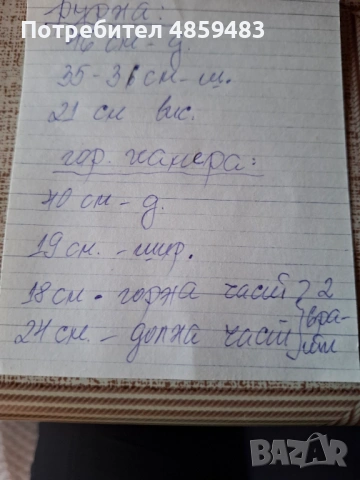 Потребител 4859483
фурна:
46 см - д.
35-31 см - ш.
21 см вис.
гор. камера:
40 см - д.
19 см. - шир.
18 см. горна част } 2
24 см. - долна част } вра-
ти
BAZAR